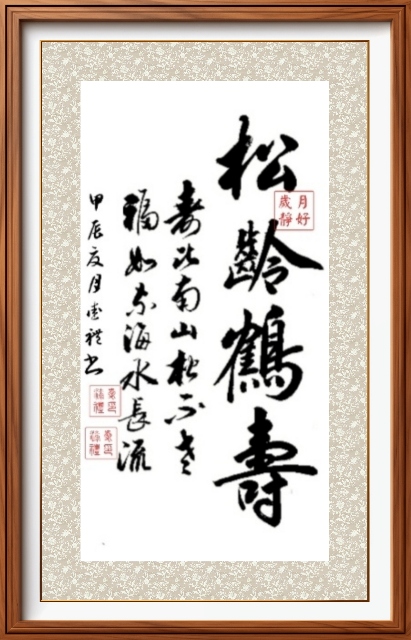 松齡鶴壽
月好
歲靜
寿比南山松不老
福如东海水長流
甲辰夏月
书